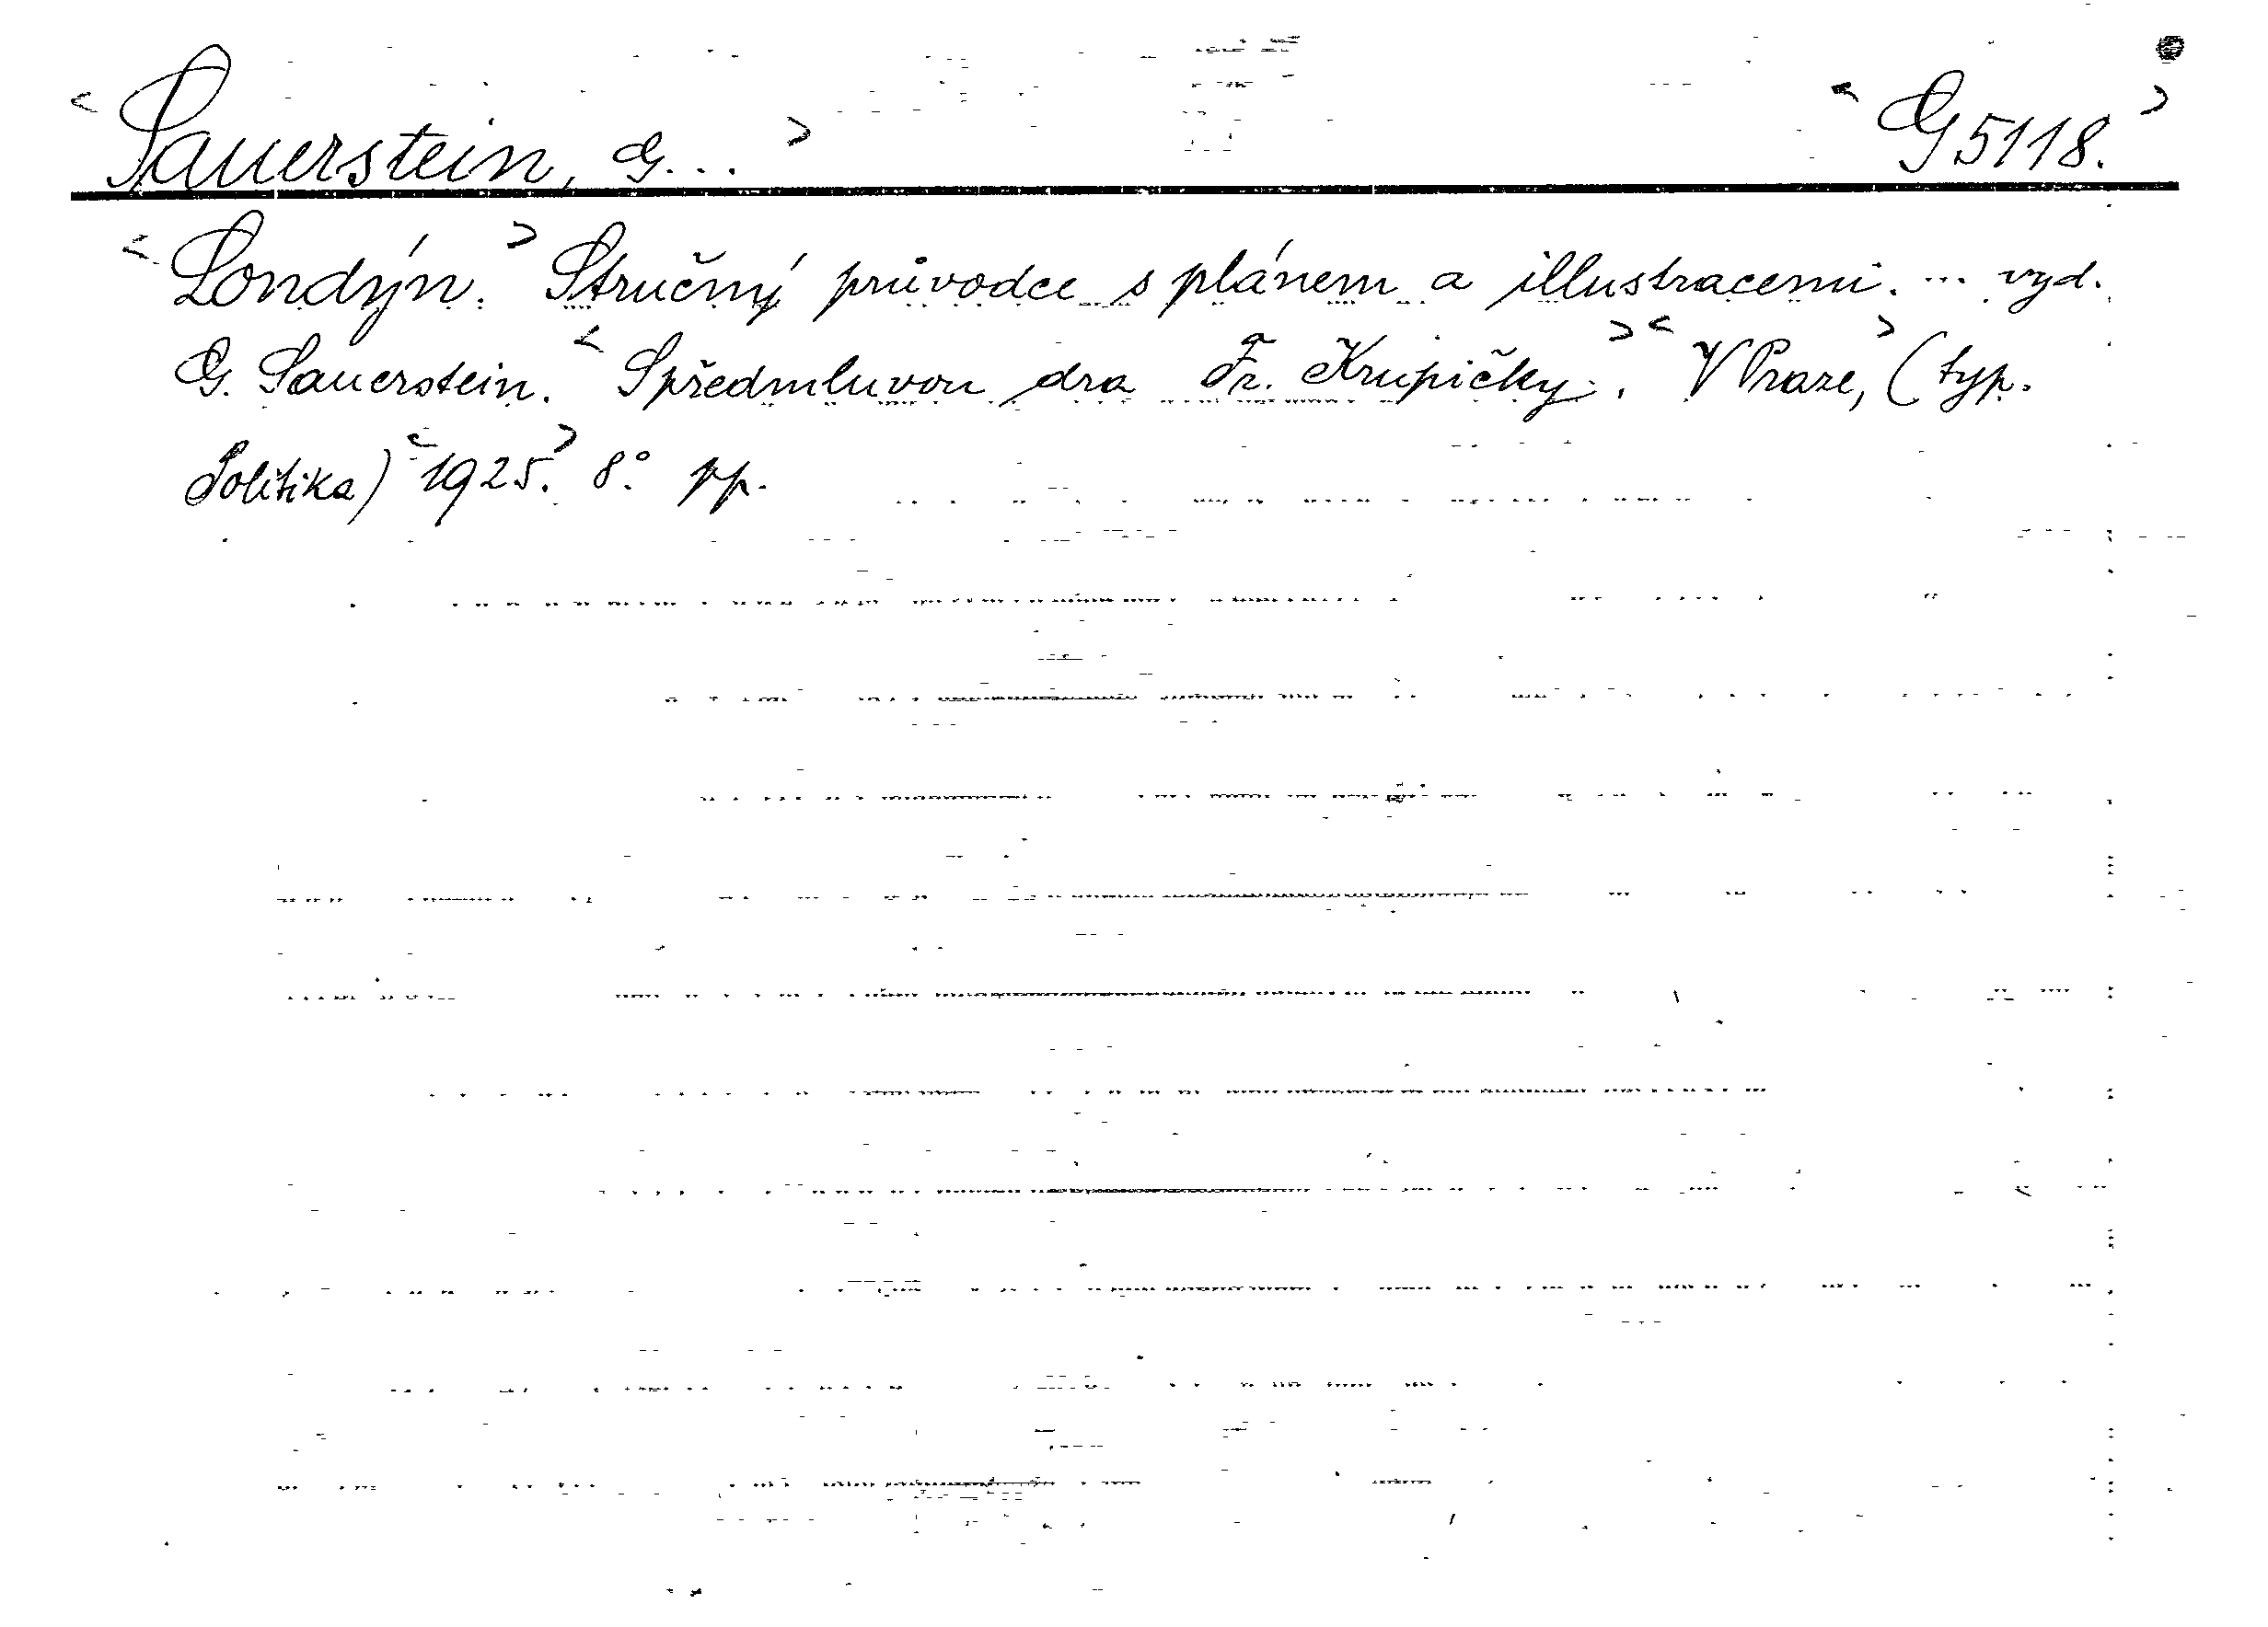 < Sauerstein, G... > < G 5118. >
< Londýn. > Stručný průvodce s plánem a illustracemi. ... vyd.
G. Sauerstein. < S předmluvou dra Fr. Krupičky. > < V Praze, > (typ.
Politika) < 1925. > 8° pp.